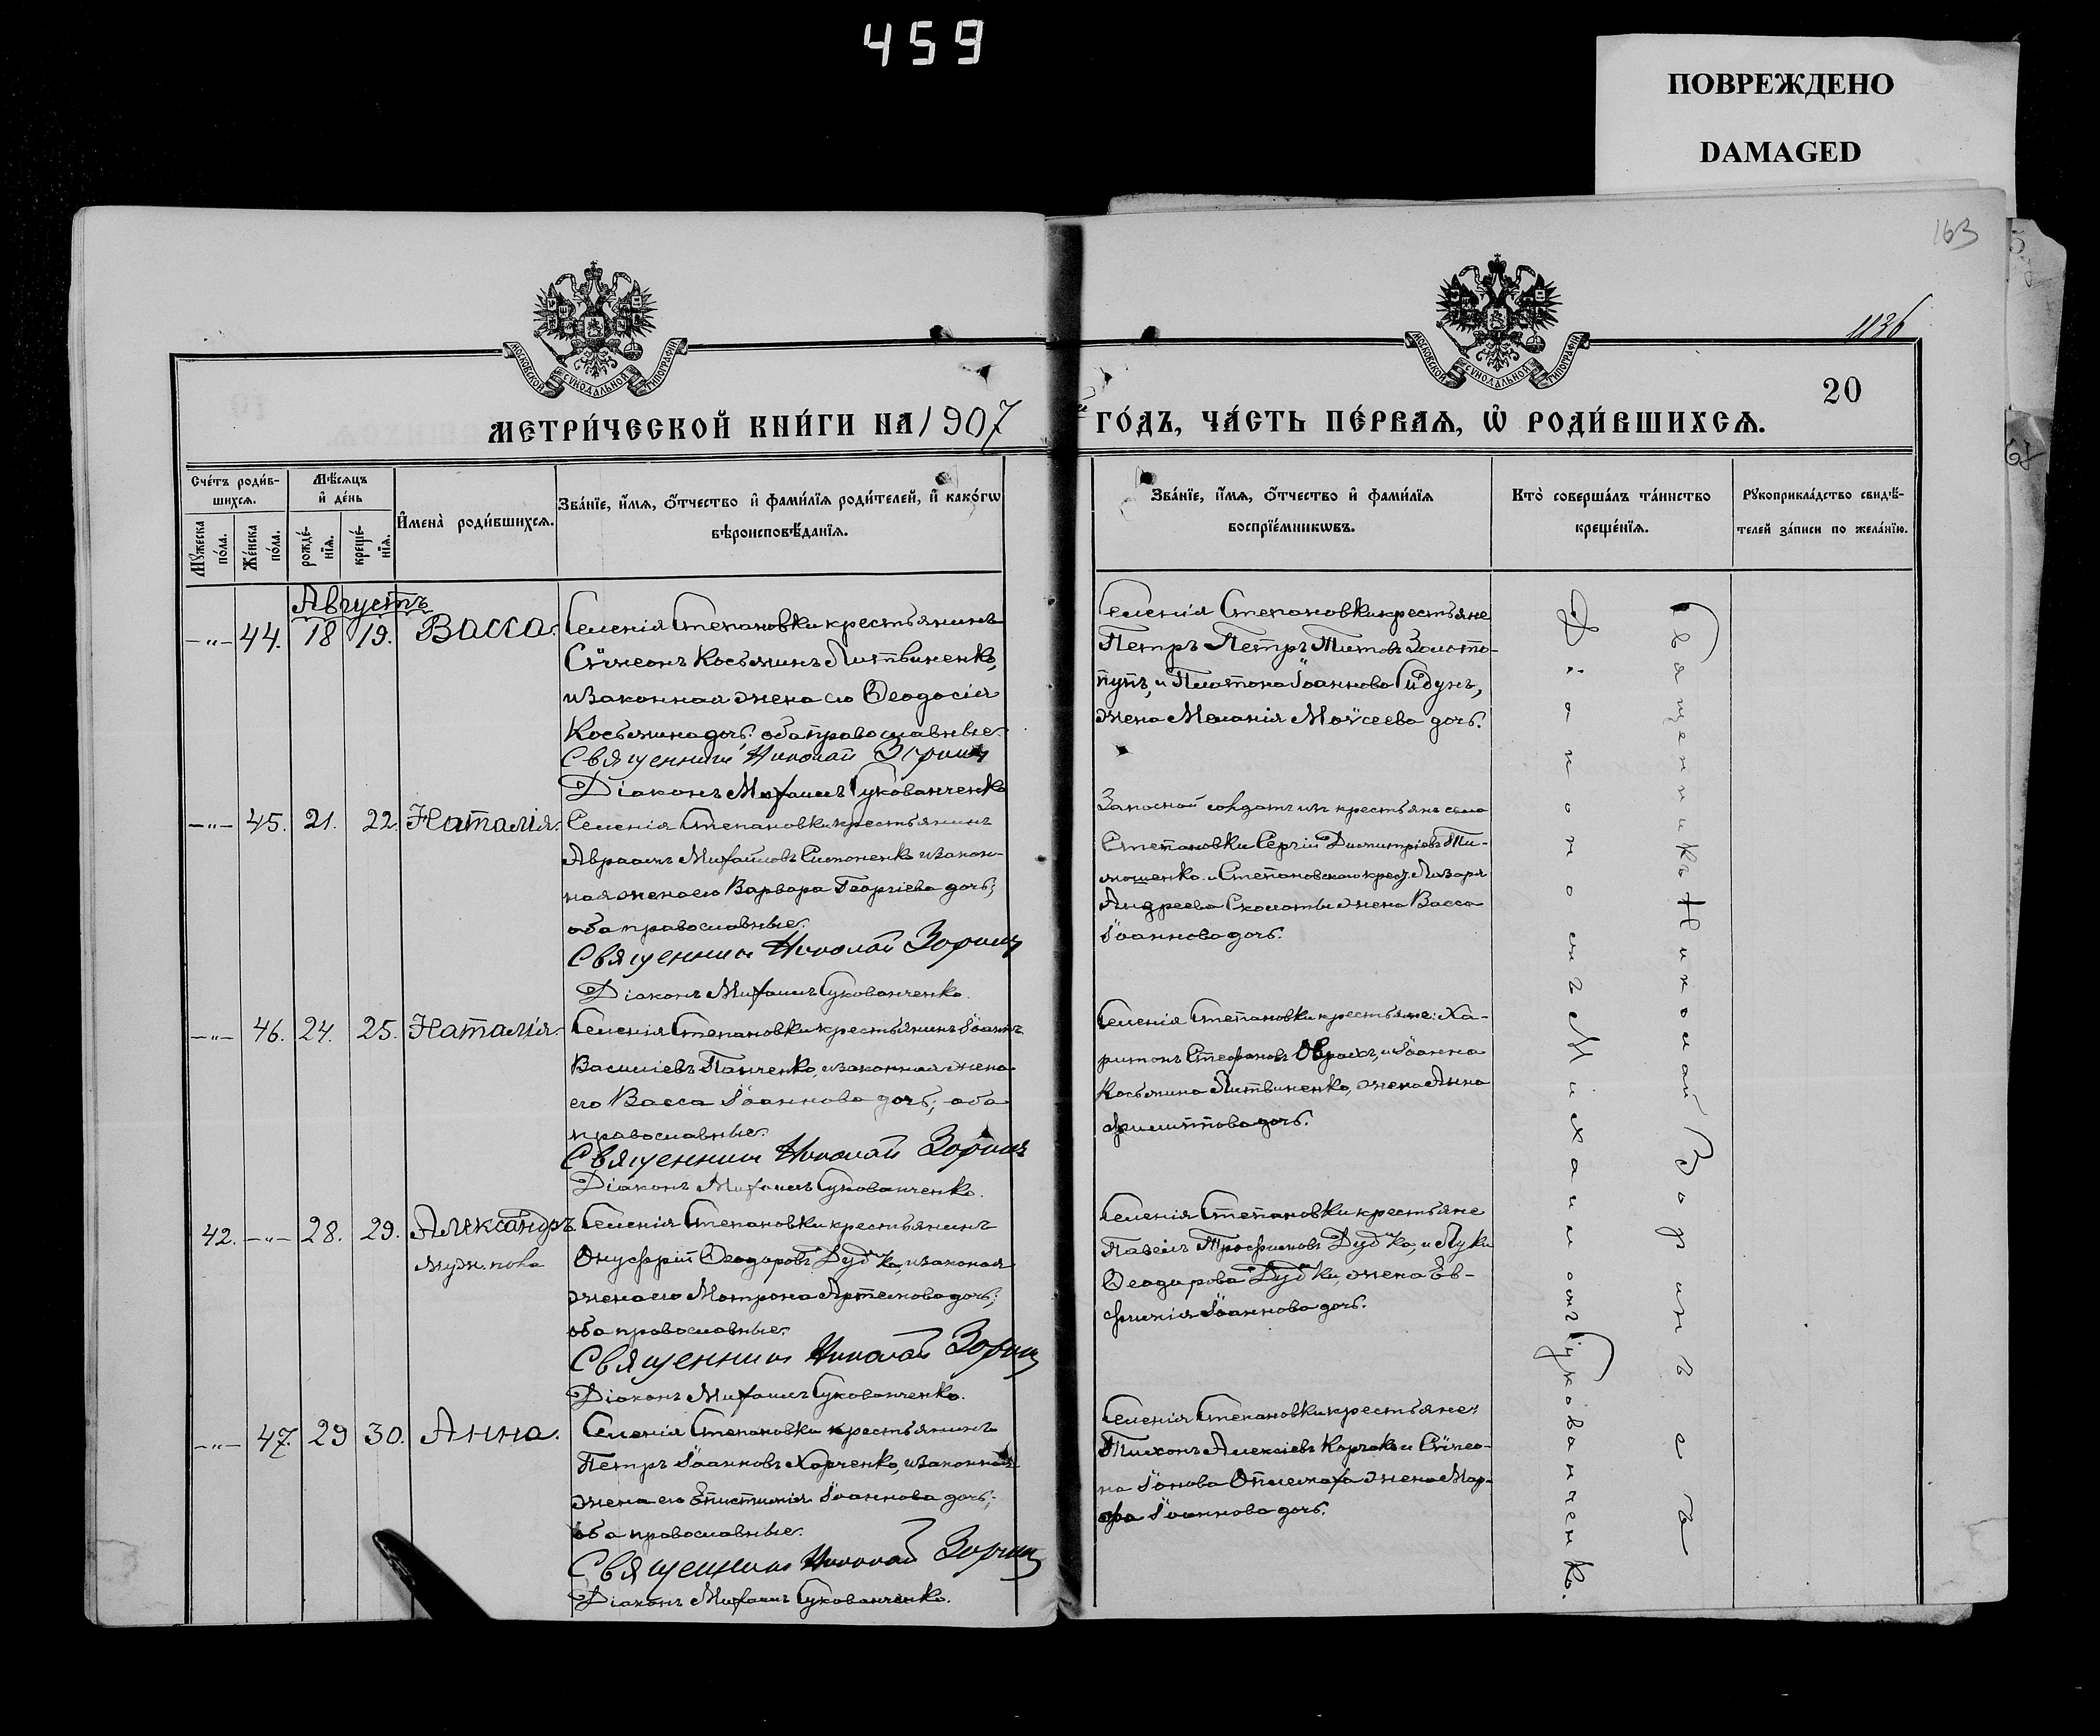 459
ПОВРЕЖДЕНО
DAMAGED
163
1136
20
МОСКОВСКОЙ СѴНОДАЛЬНОЙ ТИПОГРАФІИ
МОСКОВСКОЙ СѴНОДАЛЬНОЙ ТИПОГРАФІИ
МЕТРИ́ЧЕСКОЙ КНИ́ГИ НА 1907
ГО́ДЪ, ЧА́СТЬ ПЕ́РВАѦ, Ѡ҆ РОДИ́ВШИХСѦ.
Сче́тъ роди́в-
шихсѧ.
Мꙋжеска по́ла.
Же́нска по́ла.
Мѣ́сѧцъ
и҆ де́нь
рожде́-
нїѧ.
креще́-
нїѧ.
И҆мена̀ роди́вшихсѧ.
Зва́нїе, и҆́мѧ, ѻ҆́тчество и҆ фами́лїѧ роди́телей, и҆ како́гѡ
вѣроисповѣ́данїѧ.
Зва́нїе, и҆́мѧ, ѻ҆́тчество и҆ фами́лїѧ
воспрїе́мникѡвъ.
Кто̀ соверша́лъ та́инство
креще́нїѧ.
Рꙋкоприкла́дство свидѣ́-
телей за́писи по жела́нїю.
Августъ
-"- 44. 18 19. Васса.
Селенія Степановки крестьянинъ
Сѵмеонъ Косьминъ Литвиненко,
и законная жена его Ѳеодосія
Косьмина дочь: оба православные.
Священникъ Николай Зоринъ
Діаконъ Михаилъ Сукованченко
Селенія Степановки крестьяне
Петръ Петръ Титовъ Золото-
пупъ, и Платона Іоаннова Гйдунъ,
жена Меланія Моѵсеева дочь.
-"- 45. 21. 22. Наталія.
Селенія Степановки крестьянинъ
Авраамъ Михайловъ Симоненко и закон-
ная жена его Варвара Георгіева дочь;
оба православные.
Священникъ Николай Зоринъ
Діаконъ Михаилъ Сукованченко.
Запасной солдатъ изъ крестьянъ села
Степановки Сергій Димитріевъ Ти-
мошенко. и Степановскаго крест. Лазаря
Андреева Сколоты жена Васса
Іоаннова дочь.
-"- 46. 24. 25. Наталія.
Селенія Степановки крестьянинъ Іоаннъ
Василіевъ Панченко, и законная жена
его Васса Іоаннова дочь; оба
православные.
Священникъ Николай Зоринъ
Діаконъ Михаилъ Сукованченко.
Селенія Степановки крестьяне: Ха-
ритонъ Стефановъ и Іоанна
Косьмина Литвиненко, жена Анна
Филиппова дочь.
42. -"- 28. 29. Александръ
муж. пола
Селенія Степановки крестьянинъ
Онуфрій Ѳеодоровъ Дудка, и законая
жена его Матрона Артемова дочь;
оба православные.
Священникъ Николай Зоринъ
Діаконъ Михаилъ Сукованченко.
Селенія Степановки крестьяне
Павелъ Трофимовъ Дудка, и Луки
Ѳеодорова Дудки, жена Ев-
фимія Іоаннова дочь.
-"- 47. 29 30. Анна.
Селенія Степановки крестьянинъ
Петръ Іоанновъ Харченко, и законная
жена его Епистимія Іоаннова дочь;
оба православные.
Священникъ Николай Зоринъ
Діаконъ Михаилъ Сукованченко.
Селенія Степановки крестьяне:
Тихонъ Алексіевъ Корчакъ и Сѵмео-
на Іонова жена Мар-
фа Іоаннова дочь.
Священникъ Николай Зоринъ съ
Діакономъ Михаиломъ Сукованченко.